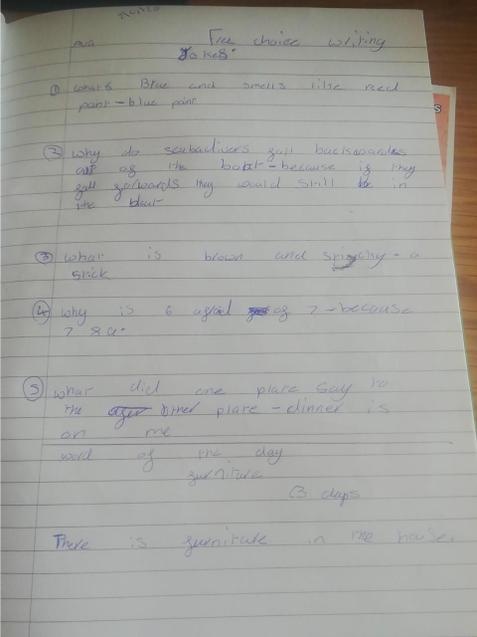 Ava
Free choice writing
Jokes
① what's Blue and smells like red
paint - blue paint
② why do scubadivers fall backswards
out of the boat - because if they
fall forwards they would still be in
the boat
③ what is brown and spinchy - a
stick
④ why is 6 afraid of 7 - because
7 8 9.
⑤ what did one plate say to
the other plate - dinner is
on me
word of the day
furniture
(3 claps
There is furniture in the house.
S